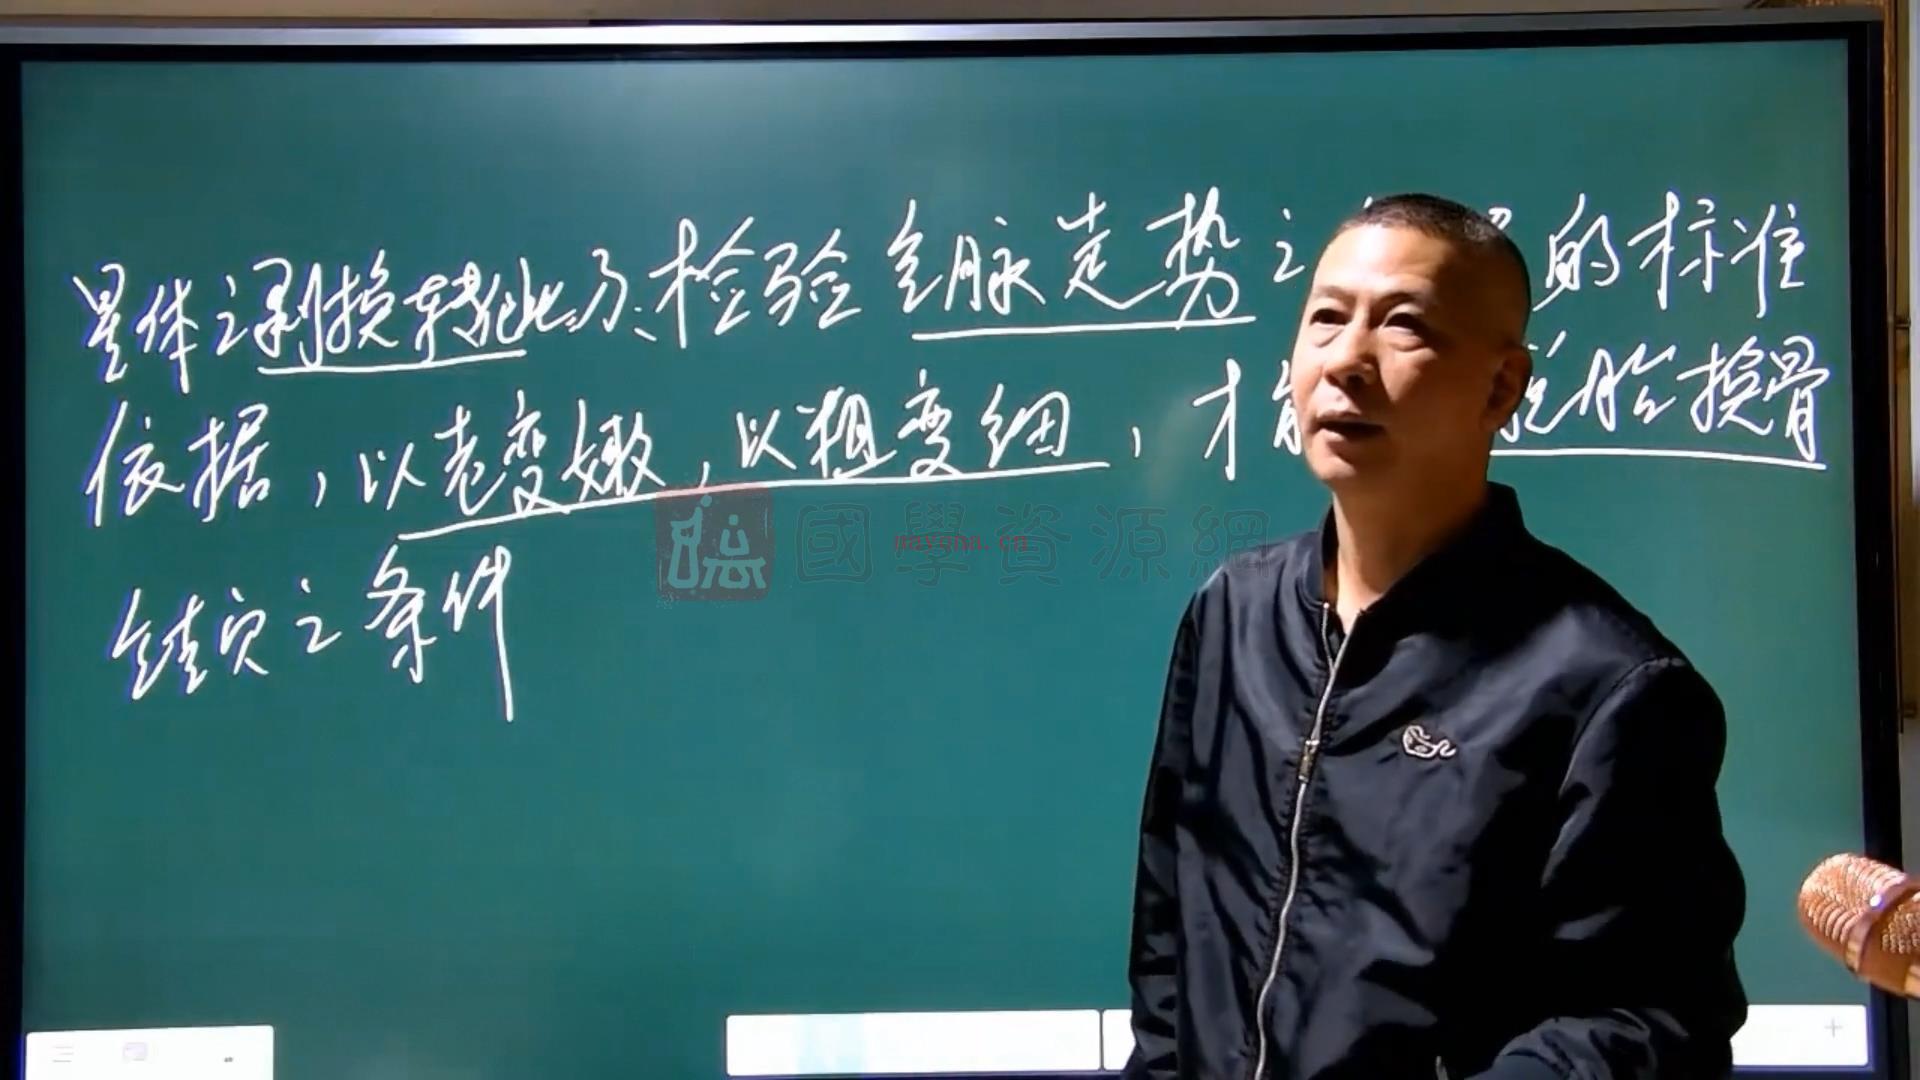 星体之剥换转化此乃检验气脉走势之的标准
依据，以老变嫩，以粗变细，才能脱胎换骨
结穴之条件
國學資源網
nayona.cn